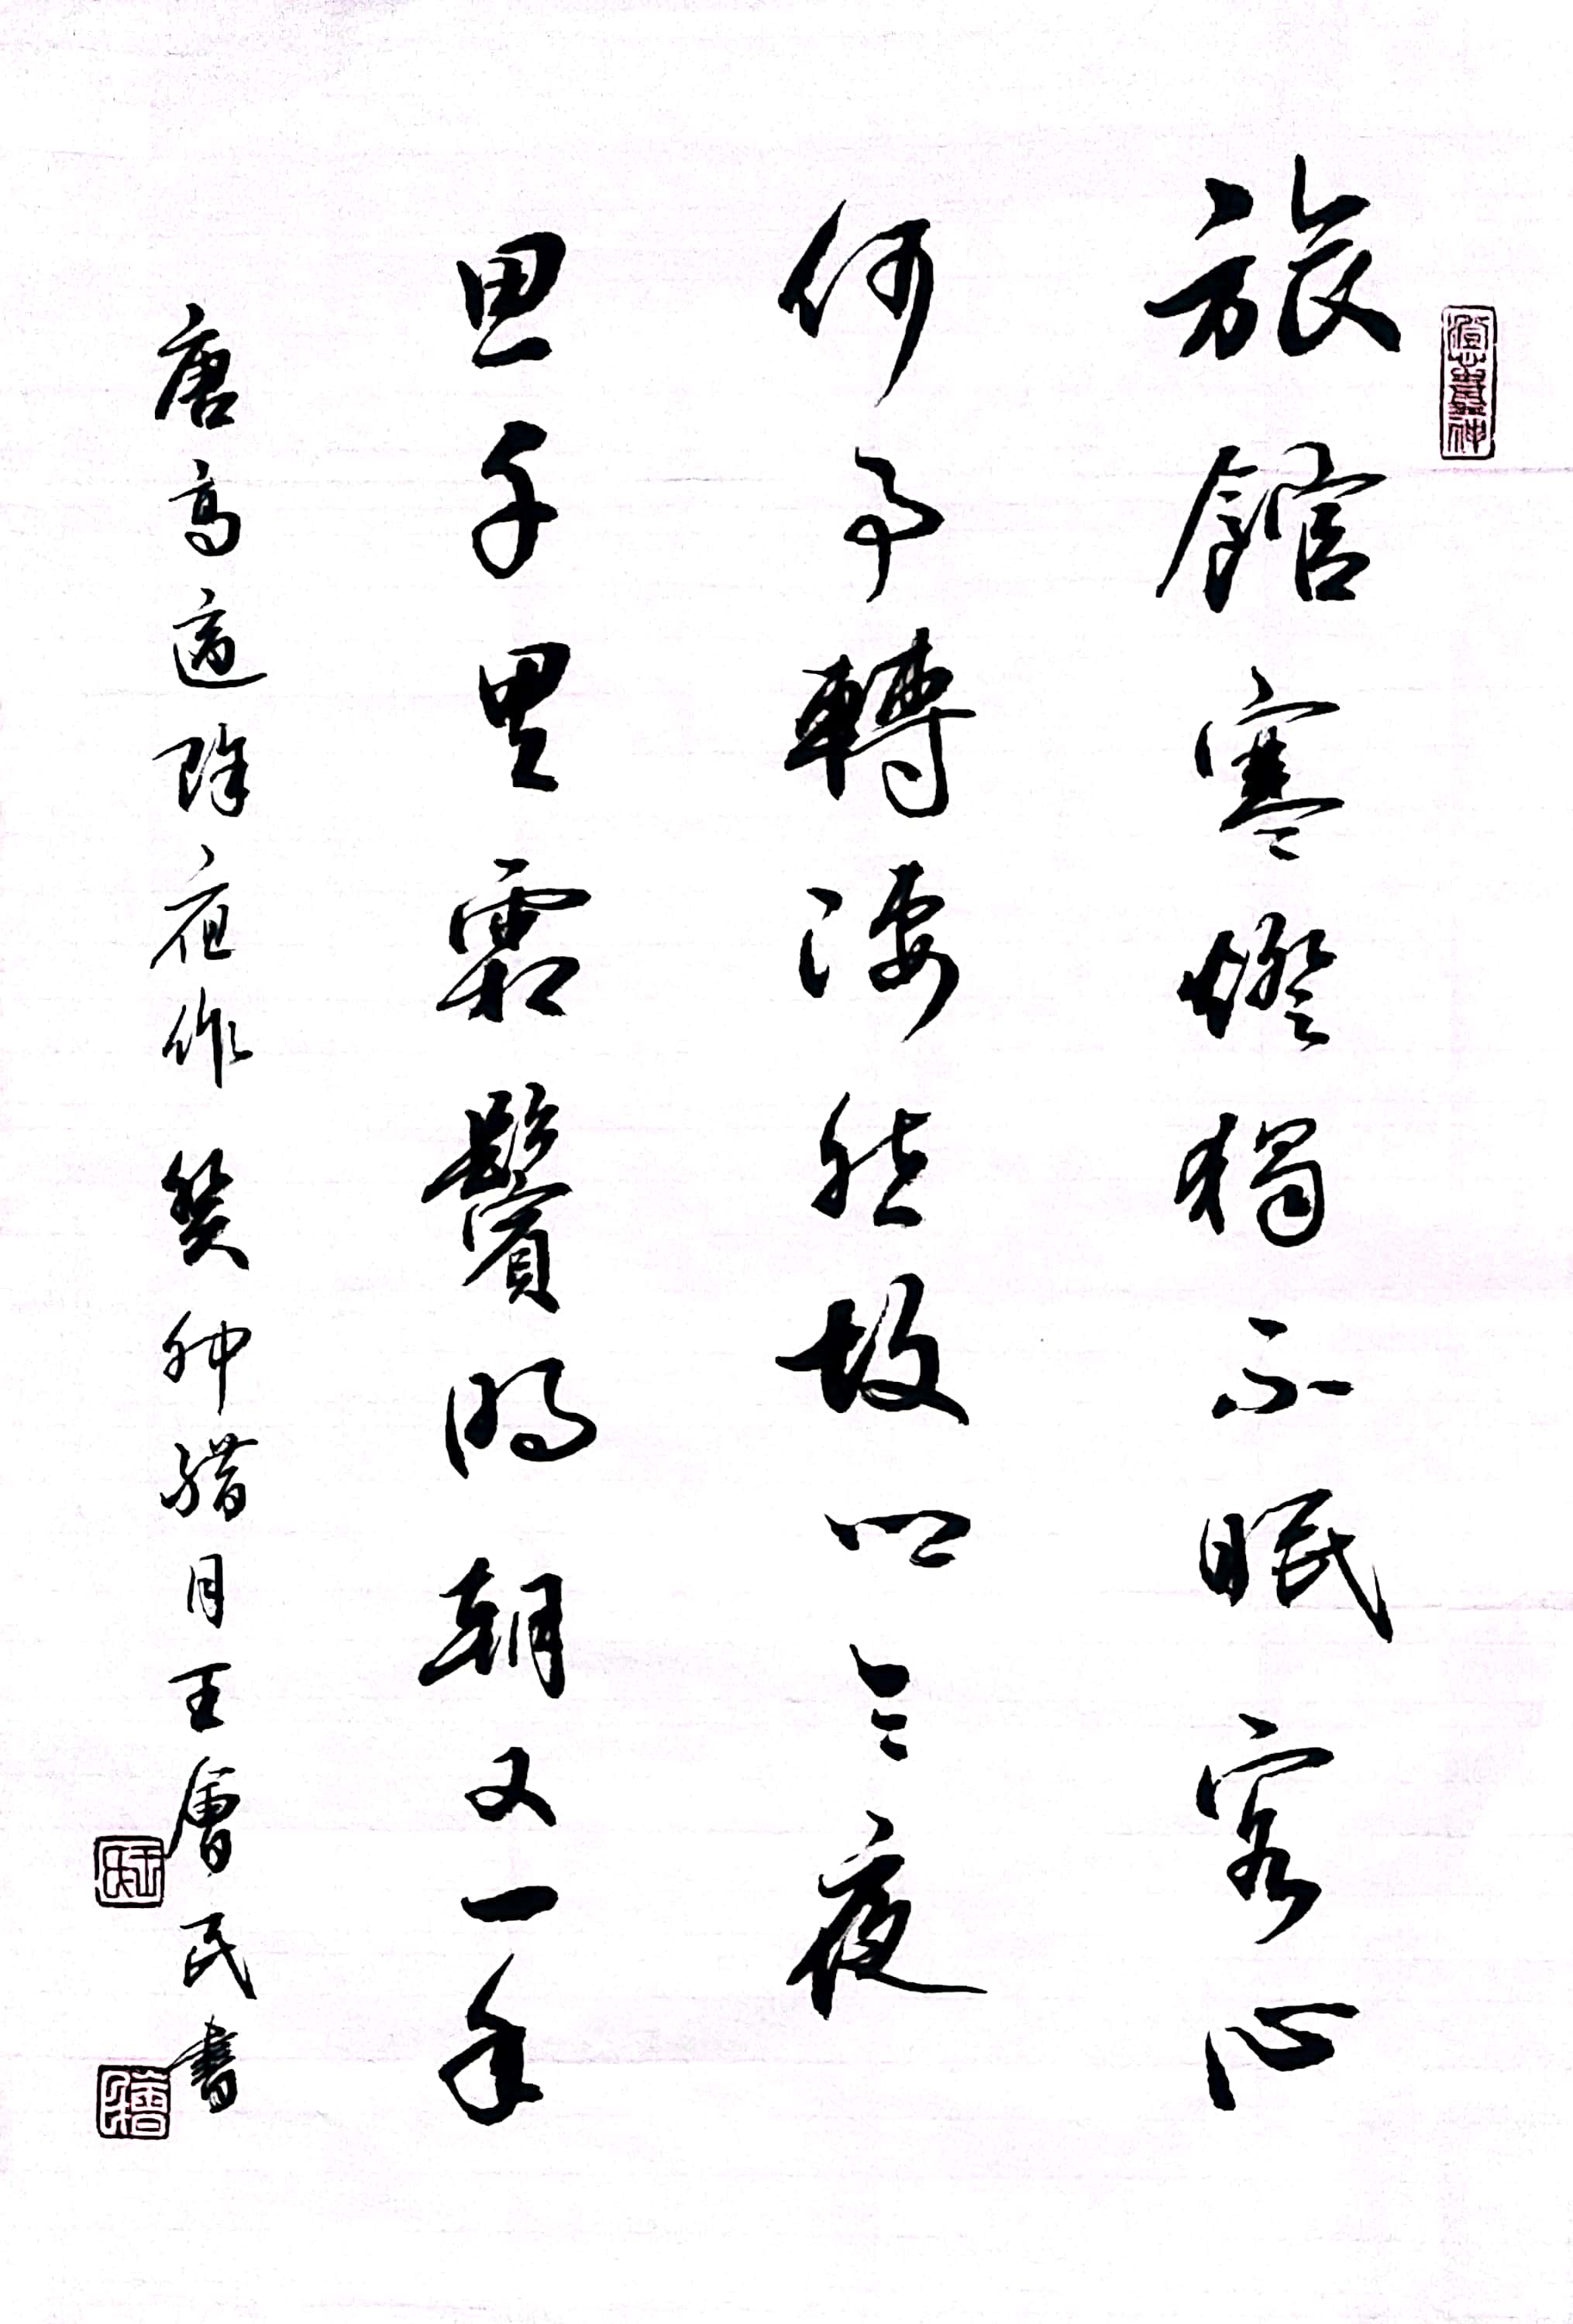 旅館寒燈獨不眠客心
何事轉淒然故鄉今夜
思千里霜鬢明朝又一年
唐高適除夜作癸卯腊月王會民書